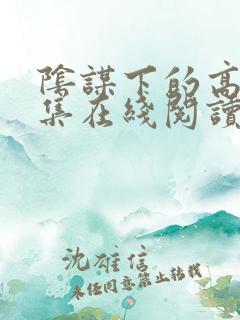 陰謀下的高
集在綫閱讀
沈雄信
未经同意禁止转载